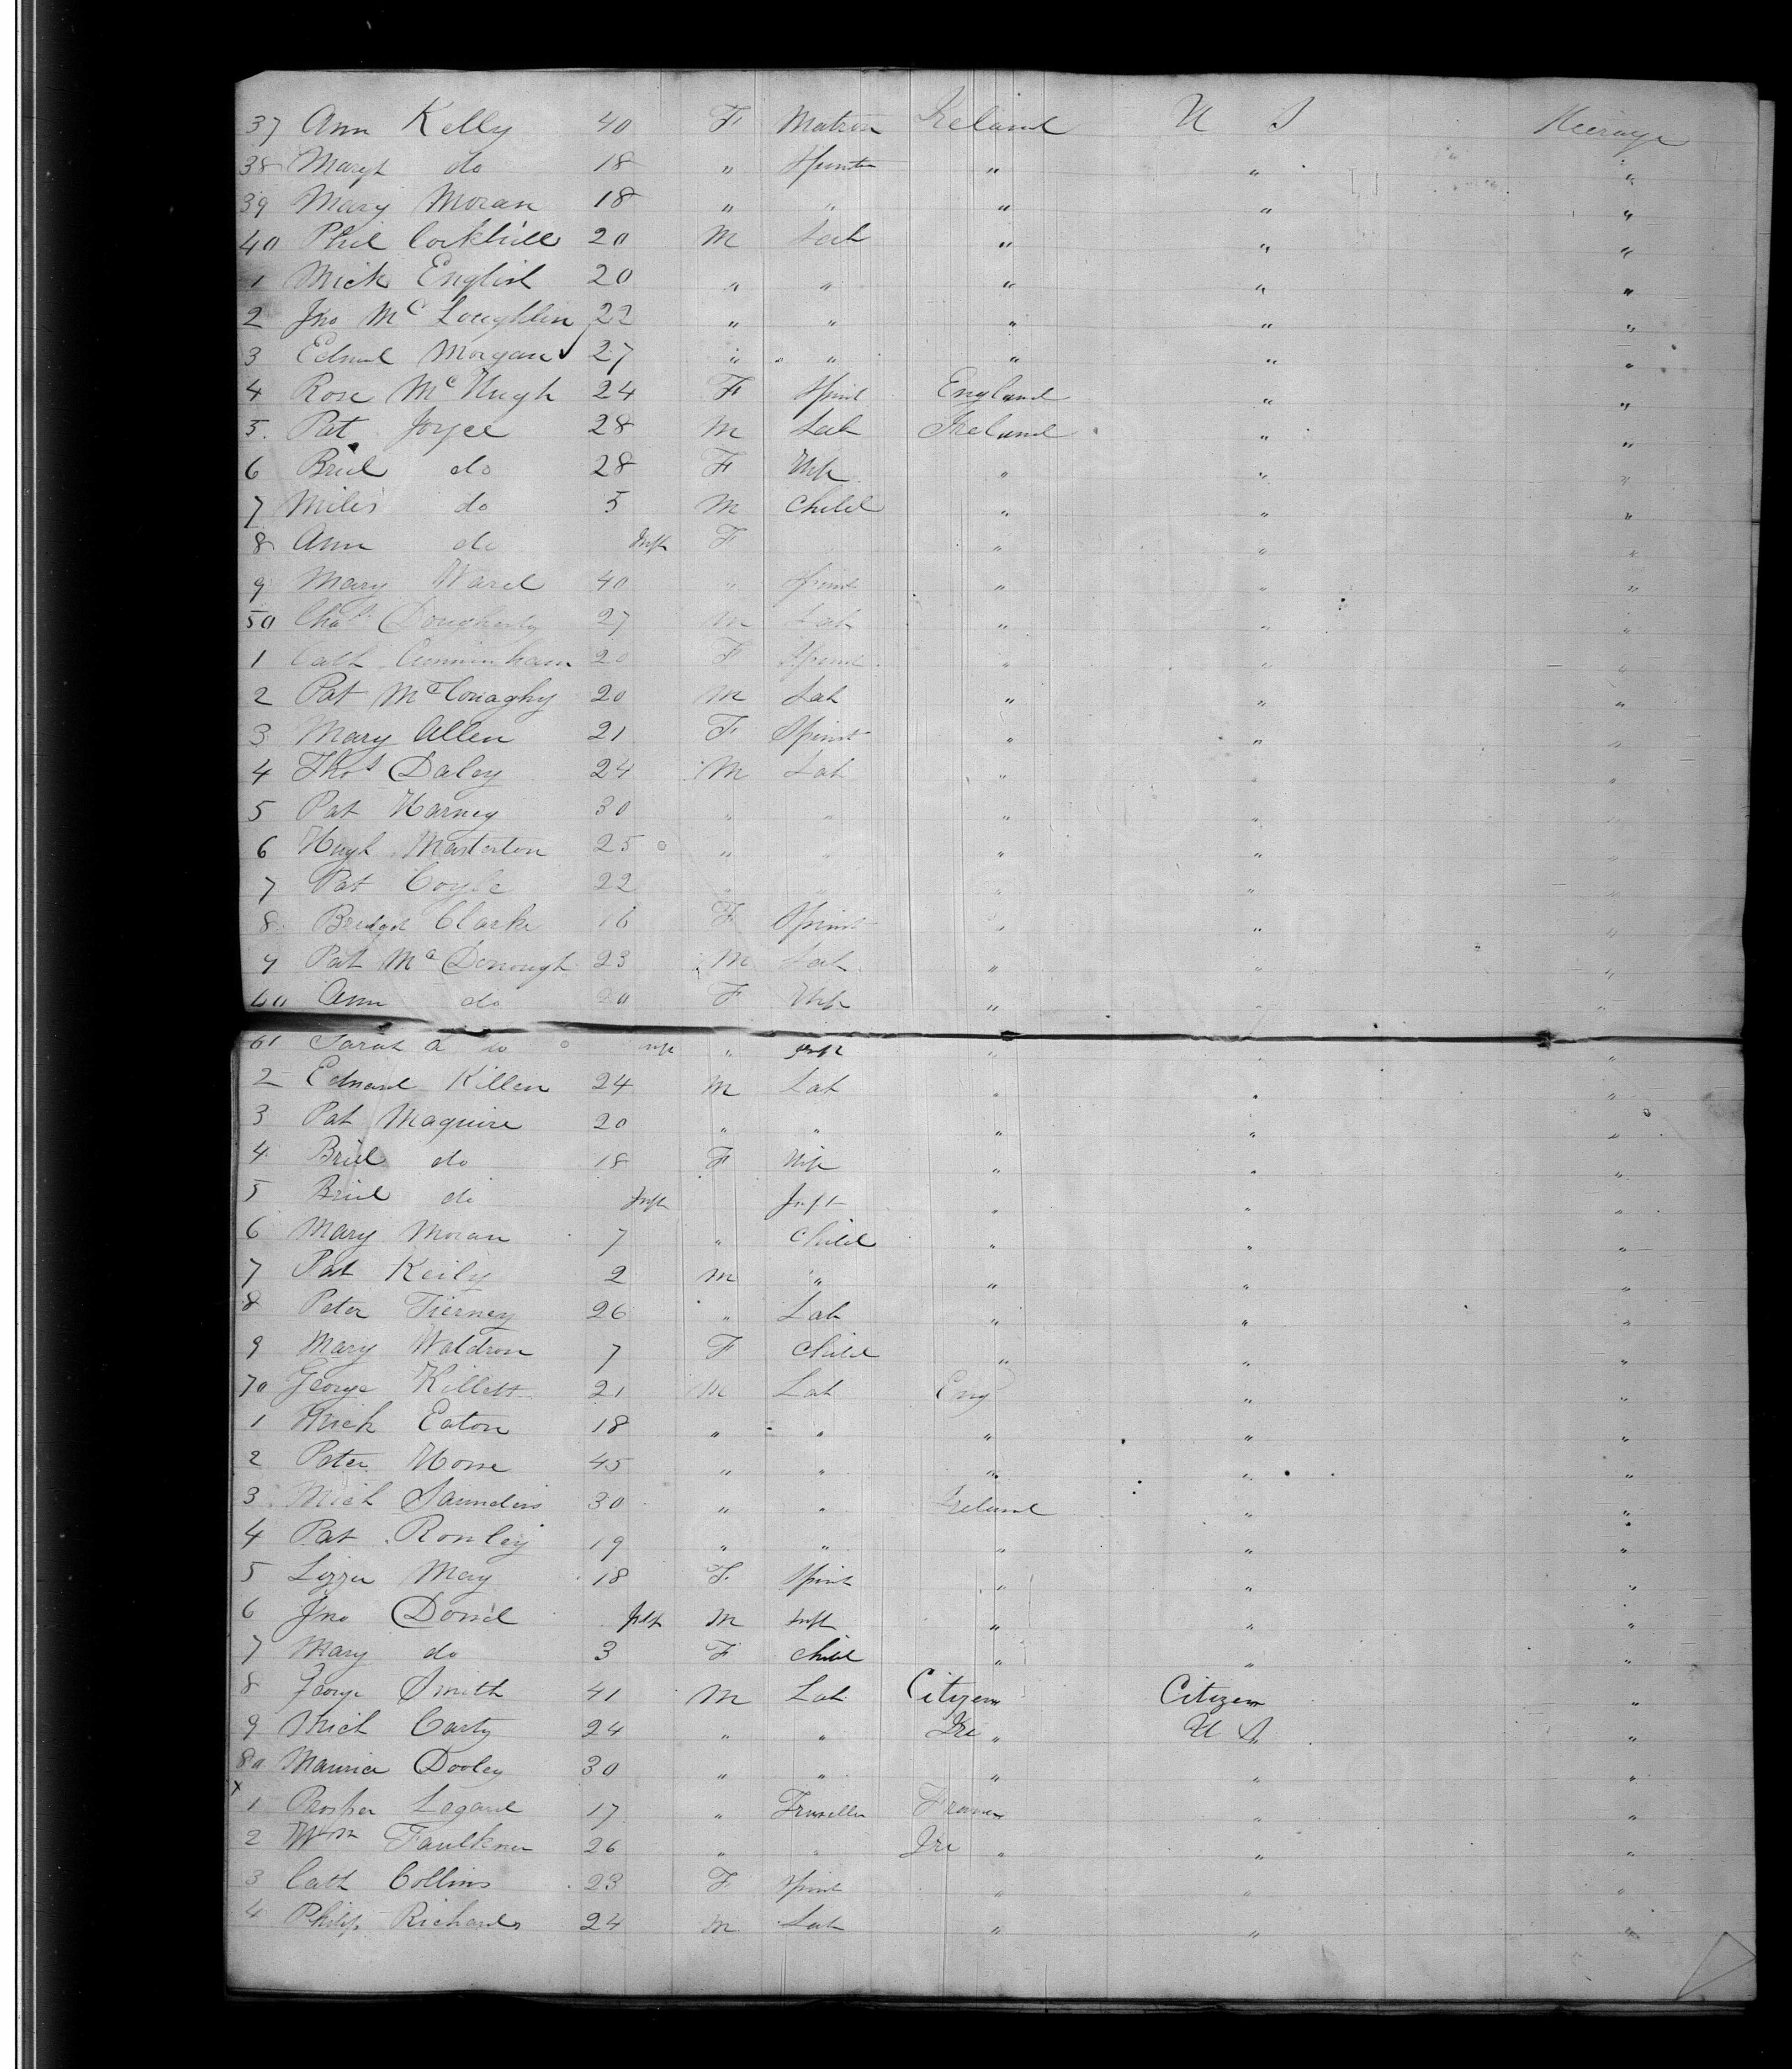 37 Ann Kelly 40 F Matron Ireland U S Steerage
38 Mary do 18 " Spinster " " "
39 Mary Moran 18 " " " " "
40 Phil Corkhill 20 M Lab " " "
1 Mick English 20 " " " " "
2 Jno McLoughlin 22 " " " " "
3 Edwd Morgan 27 " " " " "
4 Rose McHugh 24 F Spinst England " "
5 Pat Joyce 28 M Lab Ireland " "
6 Brid do 28 F Wife " " "
7 Miles do 5 M Child " " "
8 Ann do Inft F " " "
9 Mary Ward 40 " Spinst " " "
50 Chas Dougherty 27 M Lab " " "
1 Cath Cunningham 20 F Spinst " " "
2 Pat McConaghy 20 M Lab " " "
3 Mary Allen 21 F Spinst " " "
4 Thos Daley 24 M Lab " " "
5 Pat Harney 30 " " " " "
6 Hugh Masterton 25 " " " " "
7 Pat Coyle 22 " " " " "
8 Bridget Clarke 16 F Spinst " " "
9 Pat McDonough 23 M Lab " " "
60 Ann do 20 F Wife " " "
61 Sarah A do inft " inft " " "
2 Edward Killen 24 M Lab " " "
3 Pat Maguire 20 " " " " "
4 Brid do 18 F Wife " " "
5 Brid do Inft Inft " " "
6 Mary Moran 7 " Child " " "
7 Pat Keily 2 M " " " "
8 Peter Tierney 26 " Lab " " "
9 Mary Waldron 7 F Child " " "
70 George Killett 21 M Lab Eng " "
1 Mick Eaton 18 " " " " "
2 Peter Morse 45 " " " " "
3 Mich Saunders 30 " " Ireland " "
4 Pat Rowley 19 " " " " "
5 Lizzie May 18 F Spinst " " "
6 Jno Inft M Inft " " "
7 Mary do 3 F Child " " "
8 George Smith 41 M Lab Citizen Citizen "
9 Mich Carty 24 " " Ire " U S "
80 Maurice Dooley 30 " " " " "
x
1 Prosper Legard 17 " Traveller France " "
2 Wm Faulkner 26 " " Ire " " "
3 Cath Collins 23 F Spinst " " "
4 Philip Richards 24 M Lab " " "